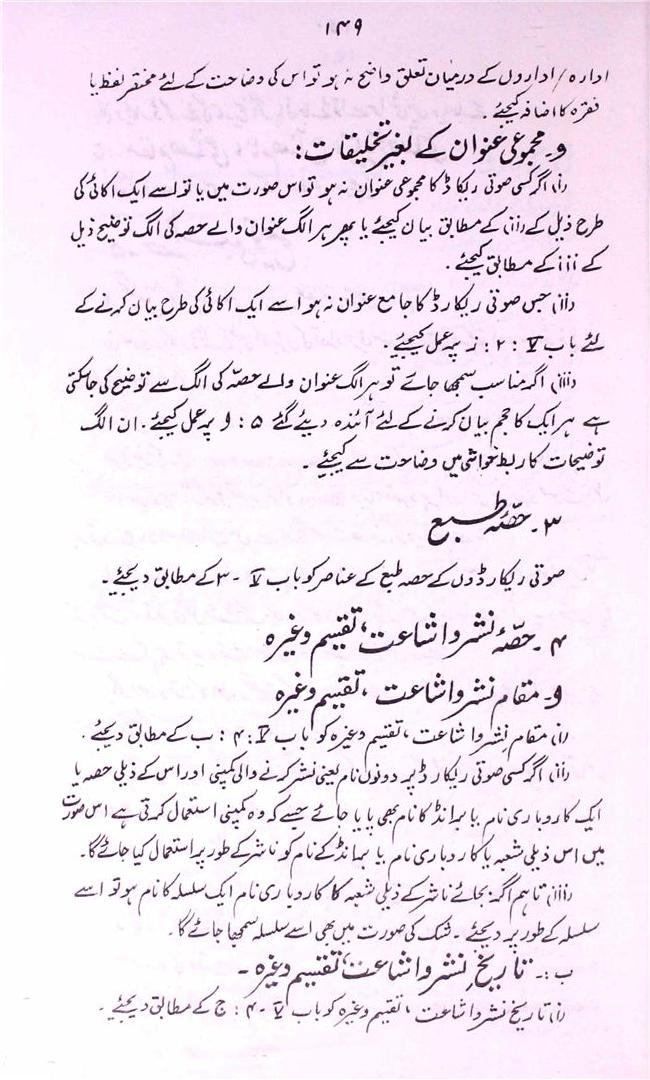 ۱۴۹
ادارہ/اداروں کے درمیان تعلق واضح نہ ہو تو اس کی وضاحت کے لئے مختصر لفظ یا
فقرہ کا اضافہ کیجئے ۔
و۔ مجموعی عنوان کے بغیر تخلیقات :
(i) اگر کسی صوتی ریکارڈ کا مجموعی عنوان نہ ہو تو اس صورت میں یا تو اسے ایک اکائی کی
طرح ذیل کے (ii) کے مطابق بیان کیجئے یا پھر ہر الگ عنوان والے حصہ کی الگ توضیح ذیل
کے iii کے مطابق کیجئے ۔
(ii) جس صوتی ریکارڈ کا جامع عنوان نہ ہو اسے ایک اکائی کی طرح بیان کرنے کے
لئے باب V : ۲ : ز پر عمل کیجئے ۔
(iii) اگر مناسب سمجھا جائے تو ہر الگ عنوان والے حصّہ کی الگ سے توضیح کی جا سکتی
ہے ہر ایک کا حجم بیان کرنے کے لئے آئندہ دیئے گئے ۵ : و پر عمل کیجئے ۔ ان الگ
توضیحات کا ربط حواشی میں وضاحت سے کیجئے ۔
۳۔ حصّہ طبع
صوتی ریکارڈوں کے حصہ طبع کے عناصر کو باب V ۔ ۳ کے مطابق دیجئے ۔
۴۔ حصّہ نشر و اشاعت، تقسیم وغیرہ
و۔ مقام نشر و اشاعت ، تقسیم وغیرہ
(i) مقام نشر و اشاعت ، تقسیم وغیرہ کو باب V : ۴ : ب کے مطابق دیجئے ۔
(ii) اگر کسی صوتی ریکارڈ پر دونوں نام یعنی نشر کرنے والی کمپنی اور اس کے ذیلی حصہ یا
ایک کاروباری نام یا برانڈ کا نام بھی پایا جائے جیسے کہ وہ کمپنی استعمال کرتی ہے اس صورت
میں اس ذیلی شعبہ یا کاروباری نام یا برانڈ کے نام کو ناشر کے طور پر استعمال کیا جائے گا۔
(iii) تاہم اگر بجائے ناشر کے ذیلی شعبہ کا کاروباری نام ایک سلسلہ کا نام ہو تو اسے
سلسلہ کے طور پر دیجئے ۔ شک کی صورت میں بھی اسے سلسلہ سمجھا جائے گا۔
ب :۔ تاریخ نشر و اشاعت، تقسیم وغیرہ ۔
(i) تاریخ نشر و اشاعت ، تقسیم وغیرہ کو باب V ۔ ۴ : ج کے مطابق دیجئے ۔